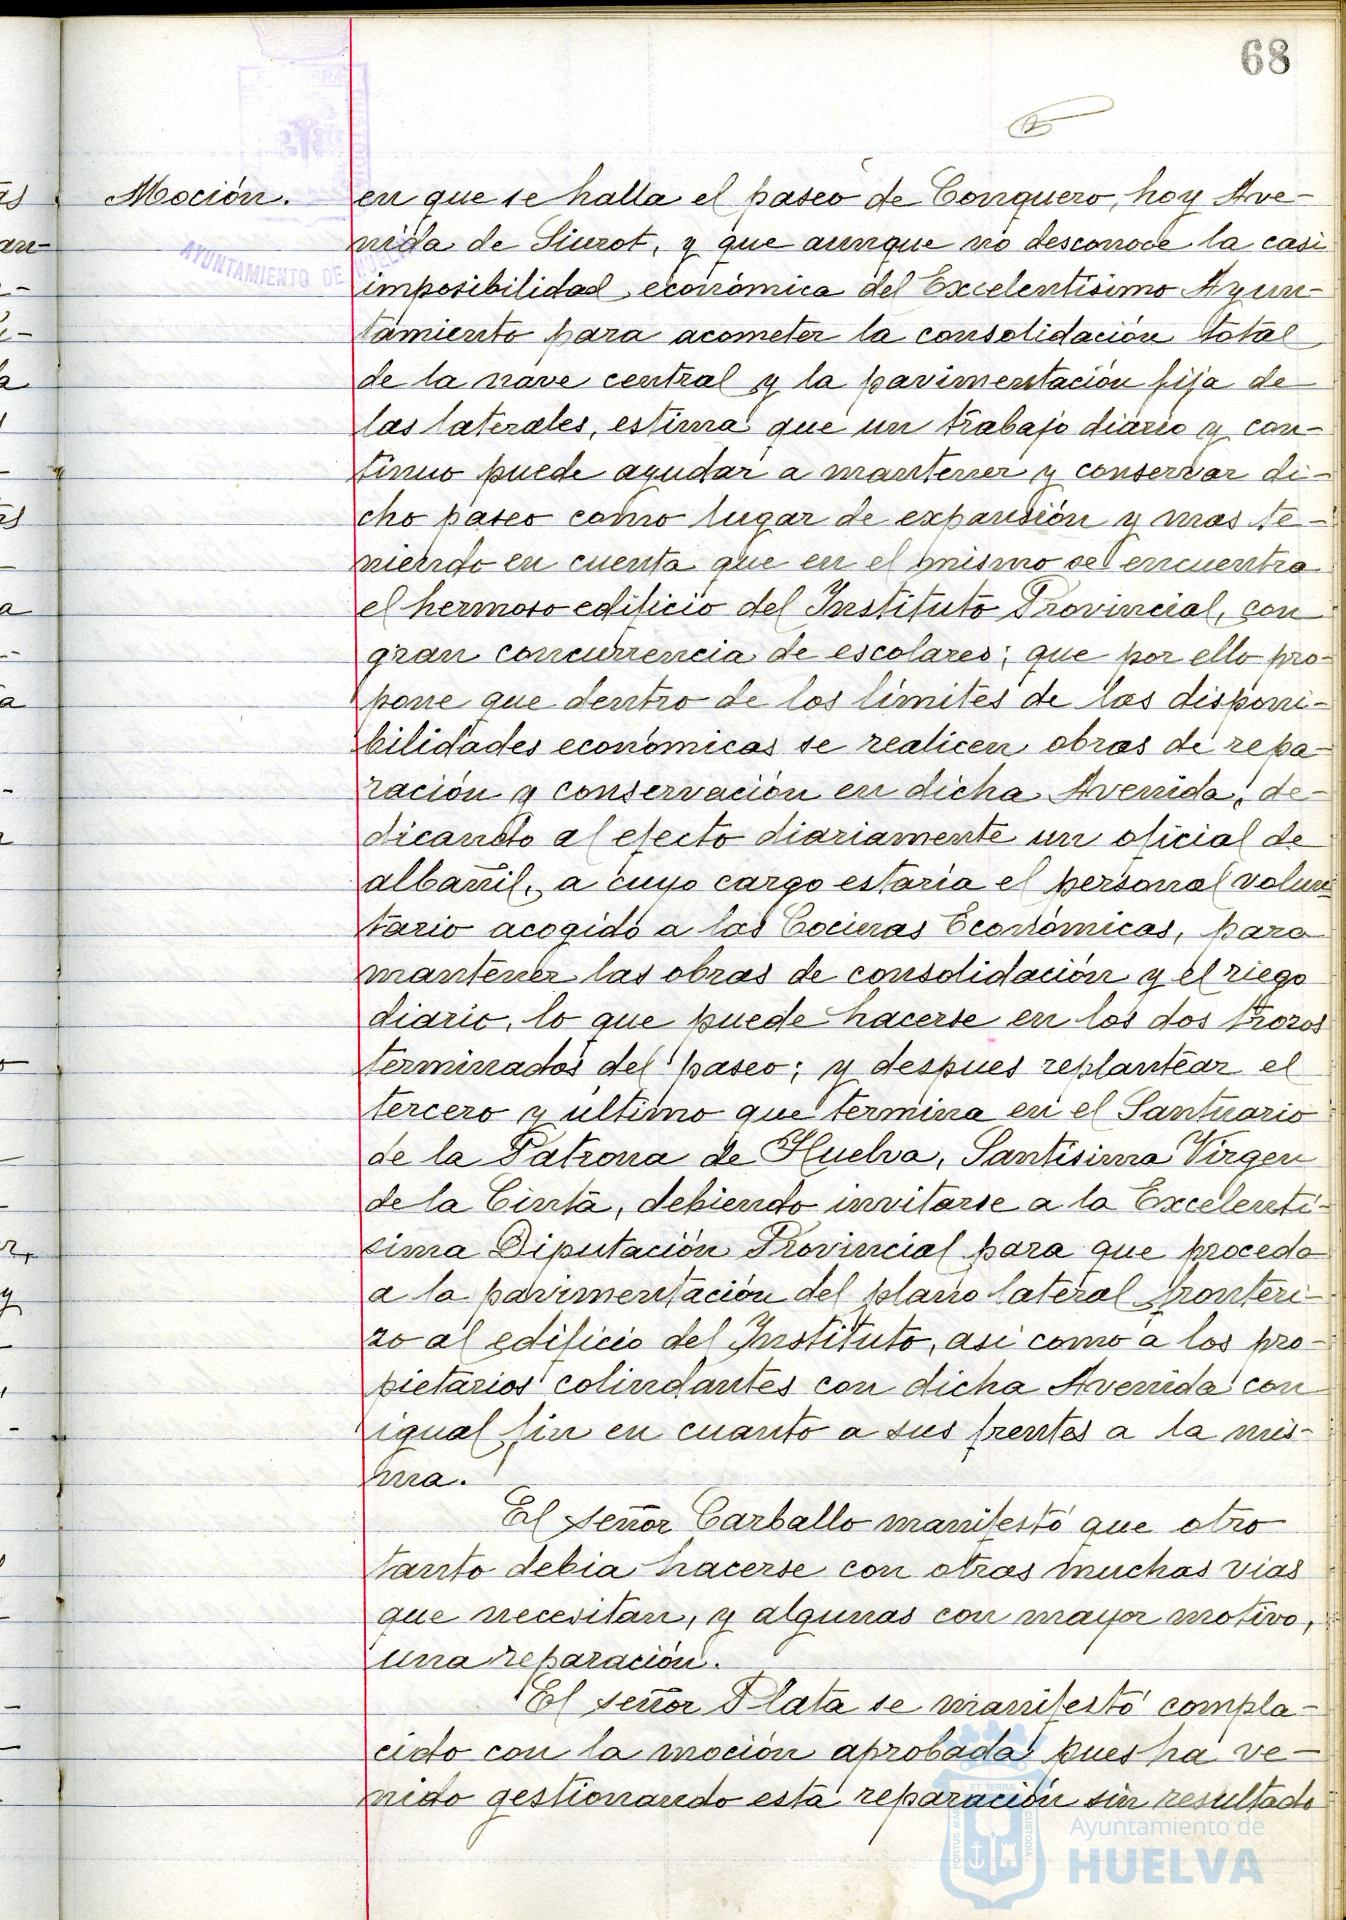 68
Moción.
en que se halla el paseo de Conquero, hoy Ave-
nida de Siurot, y que aunque no desconoce la casi
imposibilidad económica del Excelentísimo Ayun-
tamiento para acometer la consolidación total
de la nave central y la pavimentación fija de
las laterales, estima que un trabajo diario y con-
tinuo puede ayudar a mantener y conservar di-
cho paseo como lugar de expansión y mas te-
niendo en cuenta que en el mismo se encuentra
el hermoso edificio del Instituto Provincial, con
gran concurrencia de escolares; que por ello pro-
pone que dentro de los límites de las disponi-
bilidades económicas se realicen obras de repa-
ración y conservación en dicha Avenida, de-
dicando al efecto diariamente un oficial de
albañil, a cuyo cargo estaría el personal volun-
tario acogido a las Cocinas Económicas, para
mantener las obras de consolidación y el riego
diario, lo que puede hacerse en los dos trozos
terminados del paseo; y despues replantear el
tercero y último que termina en el Santuario
de la Patrona de Huelva, Santísima Virgen
de la Cinta, debiendo invitarse a la Excelentí-
sima Diputación Provincial para que proceda
a la pavimentación del plano lateral fronteri-
zo al edificio del Instituto, así como a los pro-
pietarios colindantes con dicha Avenida con
igual fin en cuanto a sus frentes a la mis-
ma.
El señor Carballo manifestó que otro
tanto debia hacerse con otras muchas vias
que necesitan, y algunas con mayor motivo,
una reparación.
El señor Plata se manifestó compla-
cido con la moción aprobada pues ha ve-
nido gestionando esta reparación sin resultado
AYUNTAMIENTO DE HUELVA
PORTUS MARIS ET TERRÆ CUSTODIA
Ayuntamiento de
HUELVA